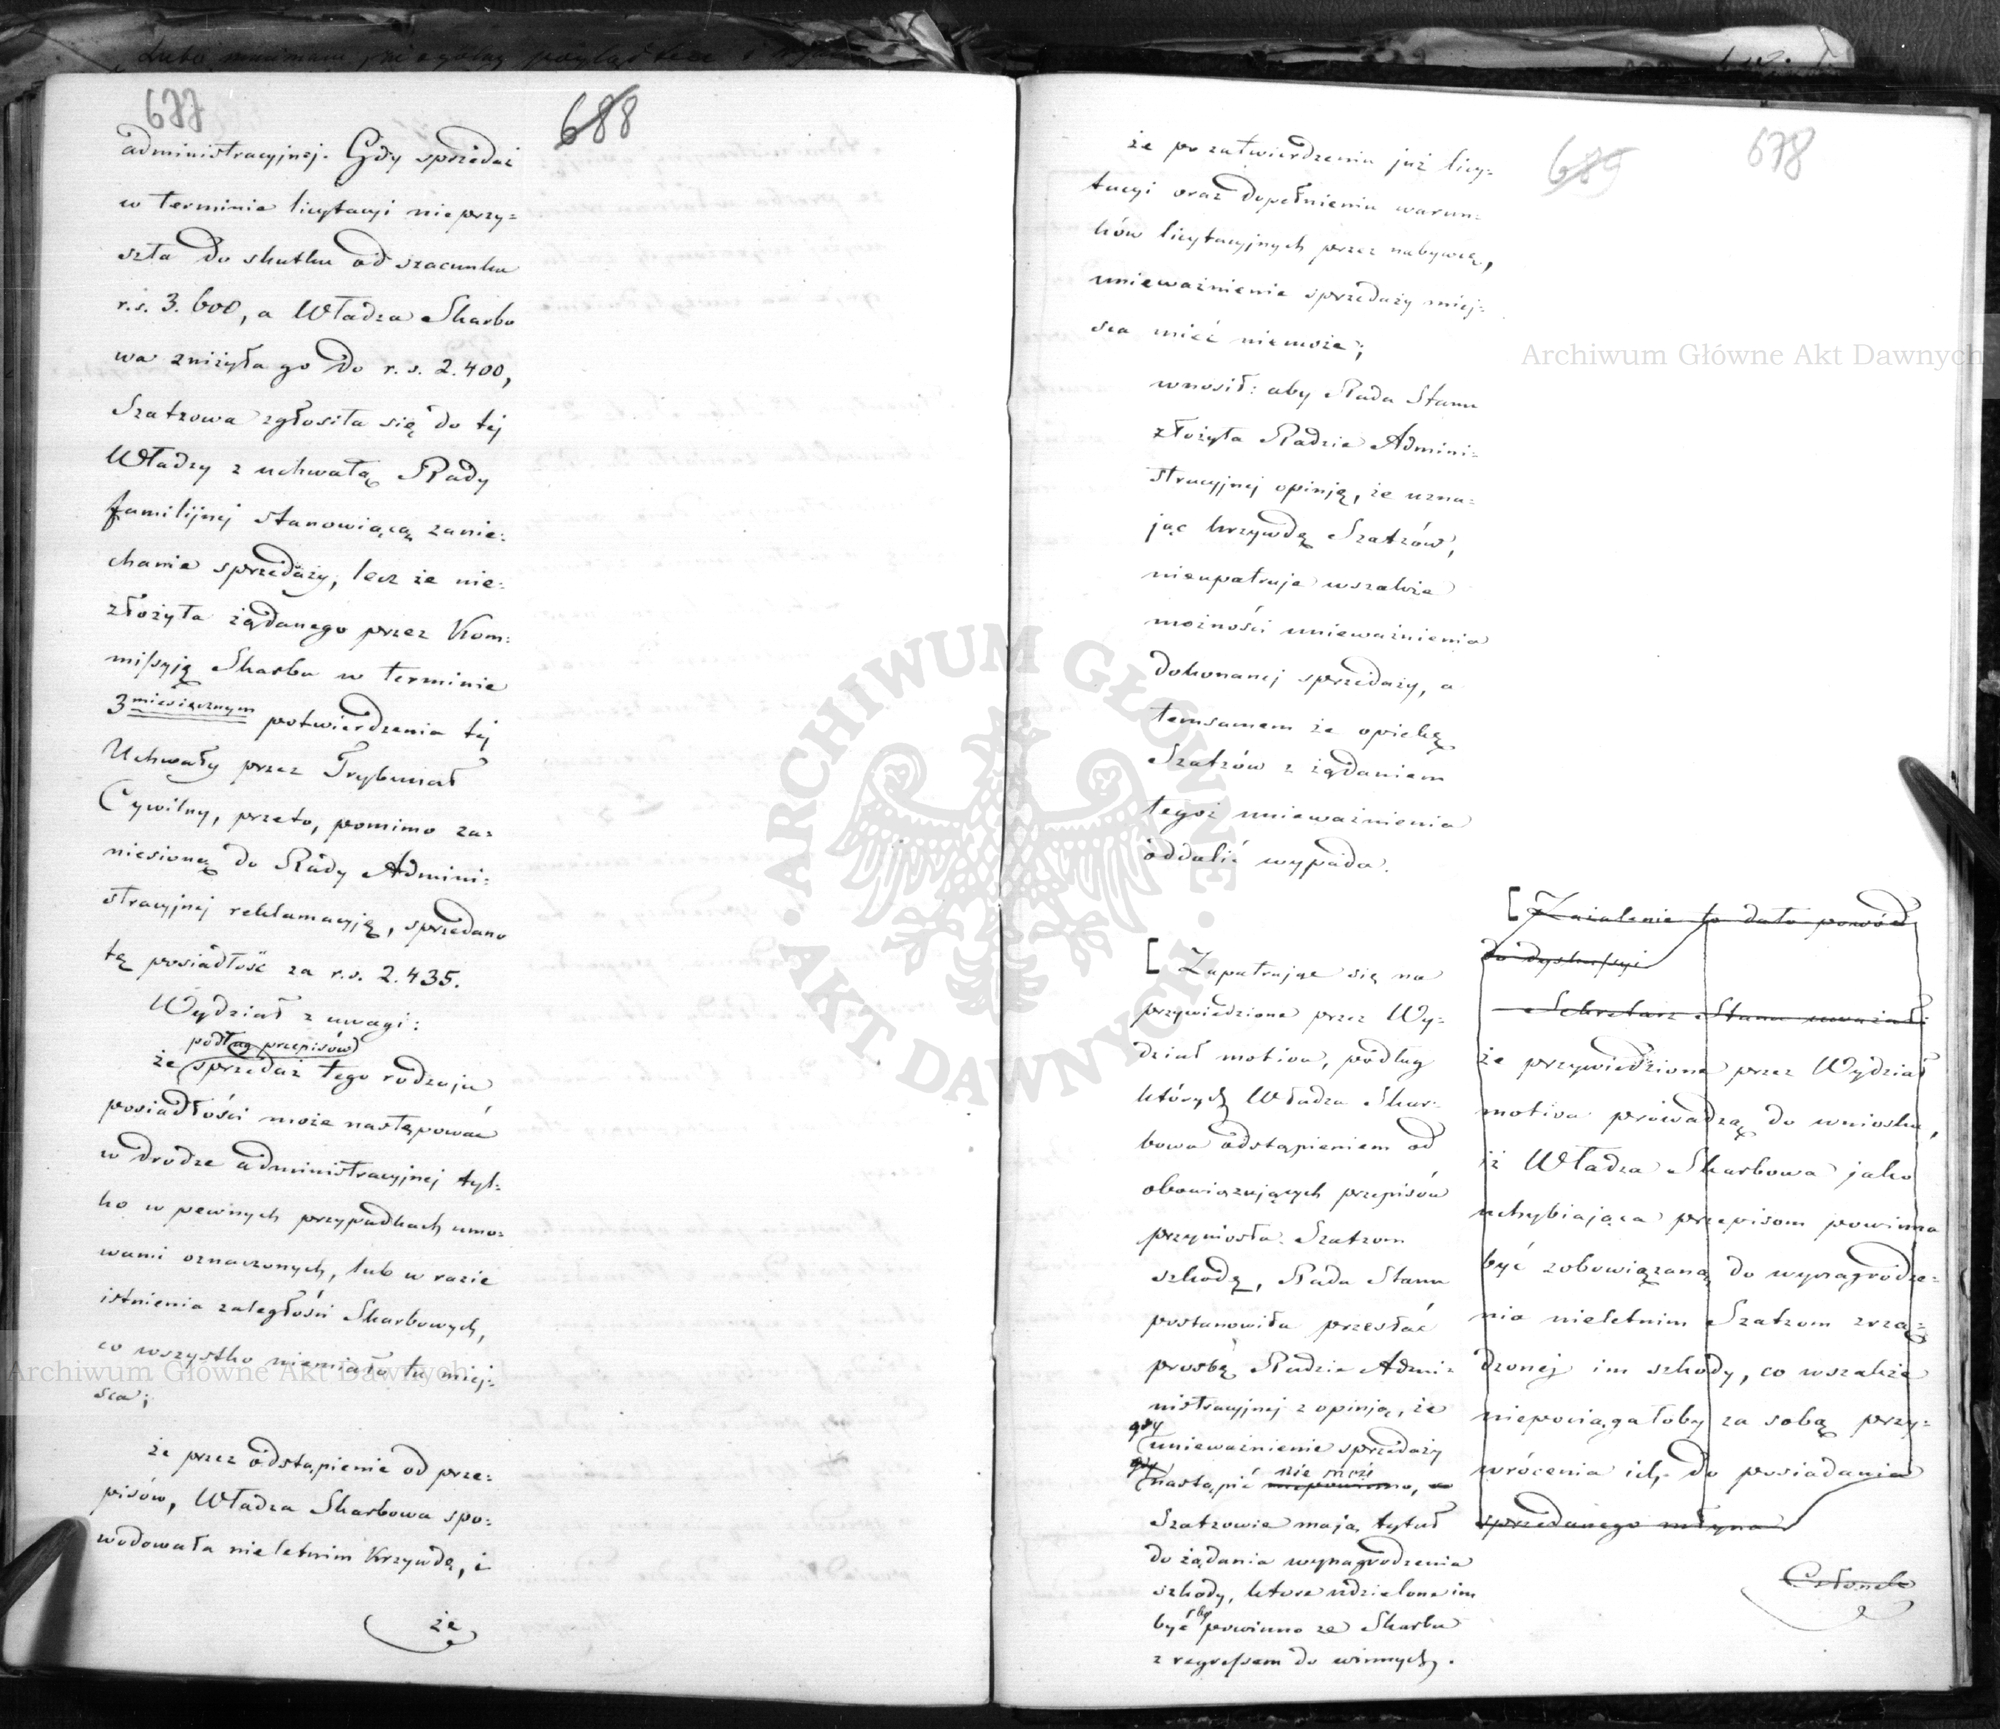 677
688
administracyjnej. Gdy sprzedaż
w terminie licytacyi nieprzy=
szła do skutku od szacunku
r.s. 3.600, a Władza Skarbo
wa zniżyła go do r.s. 2.400,
Szatzowa zgłosiła się do tej
Władzy z uchwałą Rady
familijnej stanowiącą zanie=
chanie sprzedaży, lecz że nie=
złożyła żądanego przez Kom=
missyją Skarbu w terminie
3 miesięcznym potwierdzenia tej
Uchwały przez Trybunał
Cywilny, przeto, pomimo za=
niesioną do Rady Admini=
stracyjnej reklamacyję, sprzedano
tę posiadłość za r.s. 2.435.
Wydział z uwagi:
podług przepisów
że sprzedaż tego rodzaju
posiadłości może następować
w drodze administracyjnej tyl=
ko w pewnych przypadkach umo=
wami oznaczonych, lub w razie
istnienia zaległości Skarbowych,
co wszystko niemiało tu miej=
sca;
że przez odstąpienie od prze=
pisów, Władza Skarbowa spo=
wodowała nieletnim Krzywdę, i
że
689
678
że po zatwierdzeniu już licy=
tacyi oraz dopełnieniu warun=
ków licytacyjnych przez nabywcę,
unieważnienie sprzedaży miej=
sca mieć niemoże;
wnosił: aby Rada Stanu
złożyła Radzie Admini=
stracyjnej opinją, że uzna=
jąc krzywdę Szatzów,
nieupatruje wszakże
możności unieważnienia
dokonanej sprzedaży, a
temsamem że opiekę
Szatzów z żądaniem
tegoż unieważnienia
oddalić wypada.
[ Zapatrując się na
przywiedzione przez Wy=
dział motiva, podług
których Władza Skar=
bowa odstąpieniem od
obowiązujących przepisów
przyniosła Szatzom
szkodę, Rada Stanu
postanowiła przesłać
prośbę Radzie Admi=
nistracyjnej z opinją, że
gdy
unieważnienie sprzedaży
nie może
nastąpić niepowinno,
Szatzowie mają tytuł
do żądania wynagrodzenia
szkody, które udzielone im
być by powinno ze Skarbu
z regressem do winnych.
[ Zażalenie to dało powód
do dyskussyi
Sekretarz Stanu uważał:
że przywiedzione przez Wydział
motiva prowadzą do wniosku,
iż Władza Skarbowa jako
uchybiająca przepisom powinna
być zobowiązaną do wynagrodze=
nia nieletnim Szatzom zrzą=
dzonej im szkody, co wszakże
niepociągałoby za sobą przy=
wrócenia ich do posiadania
sprzedanego młyna
Członek
Archiwum Główne Akt Dawnych
Archiwum Główne Akt Dawnych
ARCHIWUM GŁÓWNE AKT DAWNYCH